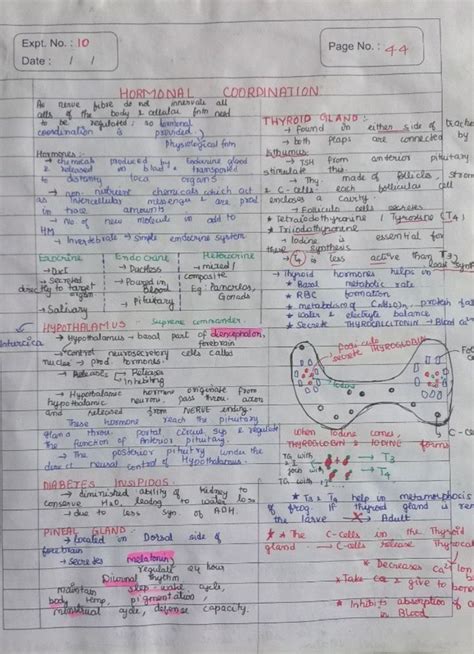 Expt. No. : 10
Date : / /
Page No. : 44
HORMONAL COORDINATION
As nerve fibre do not innervate all
cells of the body & cellular fxn need
to be regulated; so hormonal
coordination is provided.
Physiological fxn
Hormones:-
→ chemicals produced by Endocrine gland
& released in blood & transported
to distantly loca organs
→ non-nutrient chemicals which act
as intercellular messenger & are prod
in trace amounts
→ No of new molecule is add to
HM
→ Invertebrate → simple endocrine system
Exocrine Endocrine Heterocrine
→ Duct → Ductless → mixed / composite
→ Secreted directly to target → Poured in Blood Eg: Pancreas, Gonads
→ Salivary → Pituitary
HYPOTHALAMUS - Supreme commander.
→ Hypothalamus → basal part of diencephalon, forebrain
→ Control neurosecretory cells called
nuclei → prod hormones.
→ Releases → Releaser
→ Inhibiting
→ Hypothalamic hormone originate from
hypothalamic neurons, pass throu. axon
and released from NERVE ending.
These hormone reach the pituitary
gland throu. portal circu. sys & regulate
the function of Anterior pituitary.
→ The posterior pituitary under the
direct neural control of Hypothalamus.
DIABETES INSIPIDUS:
→ diminished ability of kidney to
conserve H2O, leading to water loss
→ due to less syn. of ADH.
PINEAL GLAND:
→ located in Dorsal side of
forebrain
→ secretes melatonin
regulate 24 hour
Diurnal rhythm
maintain sleep-wake cycle,
body temp, pigmentation,
menstrual cycle, defense capacity.
THYROID GLAND:
→ found in either side of trachea
→ both flaps are connected by
Isthmus
→ TSH from anterior pituitary
stimulate this
→ Thy. made of follicles,
& C-cells: each follicular cell
encloses a cavity.
→ Follicular cells secretes
* Tetraiodothyronine / Thyroxine (T4)
* Triiodothyronine
→ Iodine is essential for
there synthesis
→ T4 is less active than T3
→ Thyroid hormones helps in
* Basal metabolic rate
* RBC formation
* metabolism of Carbo, protein, fat
* water & electrolyte balance
* Secrete THYROCALCITONIN → Blood
follicule secrete THYROGLOBIN
When Iodine comes,
THYROGLOBIN & IODINE forms
TG with → T3
TG with → T4
* T3 & T4 help in metamorphosis
of frog. If thyroid gland is rem
the larve ✗→ Adult
* * The C-cells in the Thyroid
gland → C-cells release Thyrocal
* Decreases Ca2+ ion
* Take Ca & give to bone
* Inhibits absorption of
in Blood